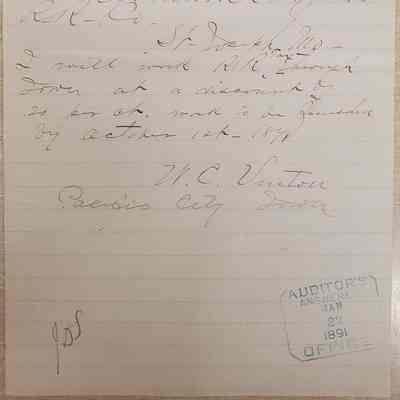 R.R. Co.
St Joseph, Mo -
I will work R.R. through
Iowa at a discount of
20 per ct. work to be finished
by October 1st - 189
W. C. Vinton
Pacific City Iowa
JDS
AUDITOR'S
ANSWERED
JAN
22
1891
OFFICE